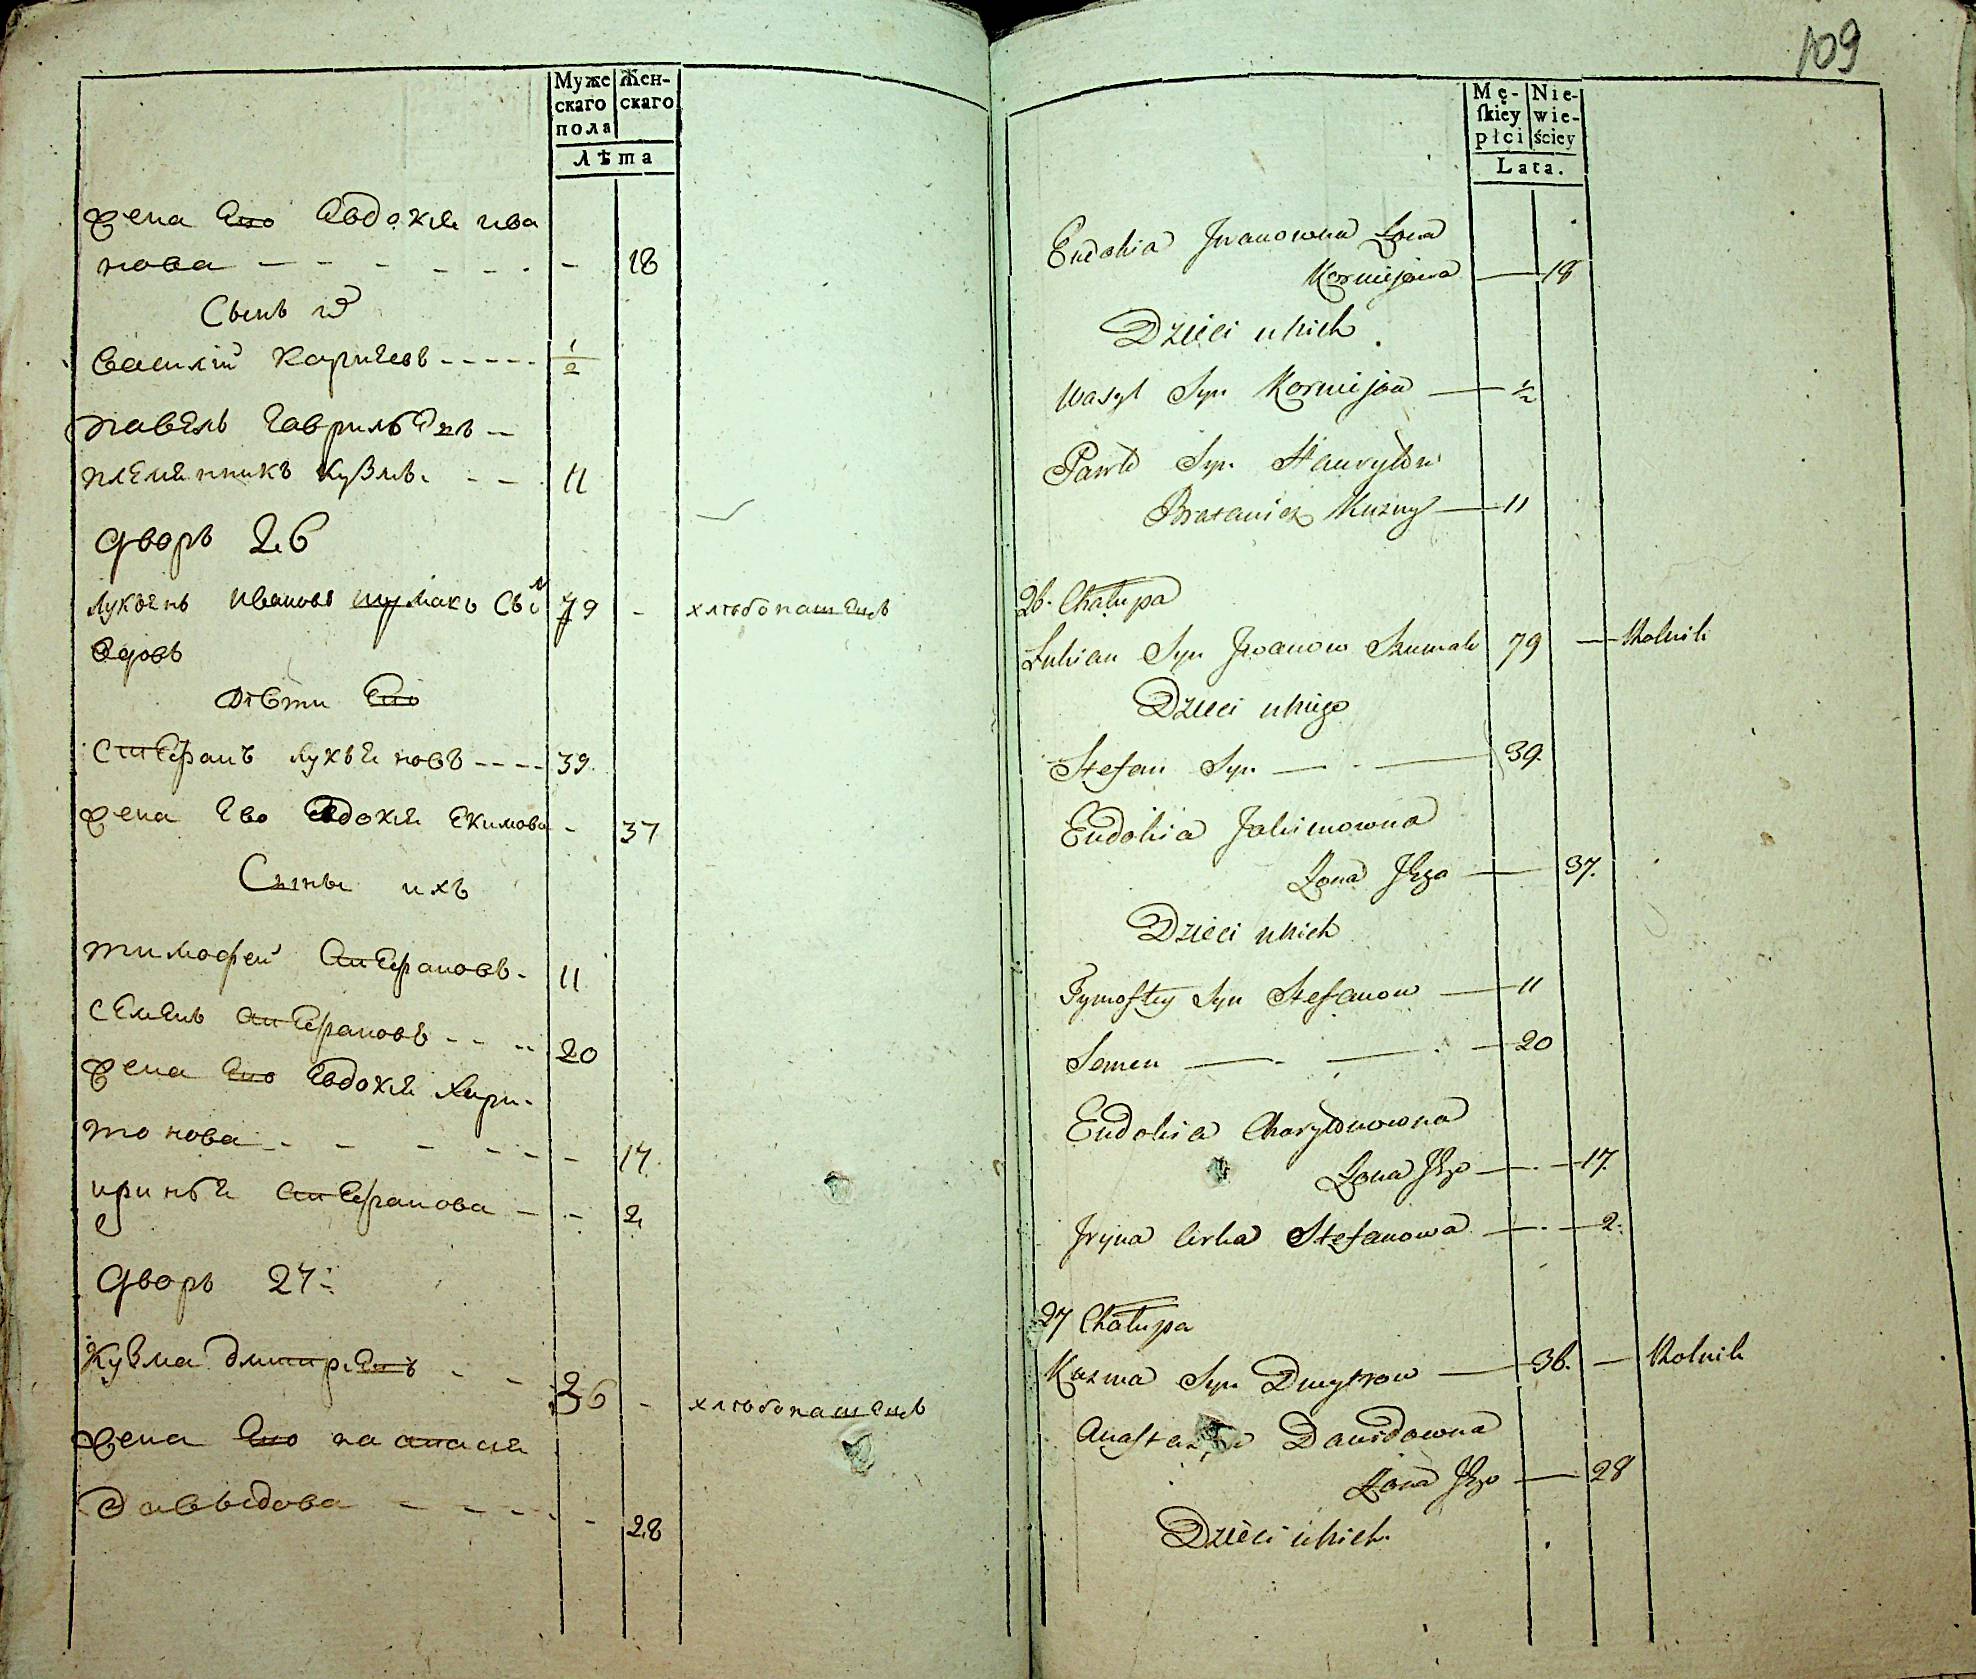 Муже
скаго
пола
Жен-
скаго
лѣта
жена Его Евдокия ива
нова - - - - - - - 18
Сынъ их
василий Карнѣевъ - - - - - 1/2
павелъ гавриловъ -
племянникъ кузмы - - 11
дворъ 26
лукьянъ ивановъ шумакъ 79 - хлѣбопашецъ
вдовъ
дѣти Его
стефанъ лукьяновъ - - - - 39.
жена Ево Евдокия Екимова - 37
Сыны ихъ
тимофей Стефановъ - 11
семенъ Стефановъ - - - 20
жена Его Евдокия Хари-
тонова - - - - - - - 17.
ирина Стефанова - - 2
дворъ 27
Кузма дмитриевъ - - 36 - хлѣбопашецъ
жена Его настасия
давыдова - - - - - 28
109
Mę-
skiey
płci
Nie-
wie-
ściey
Lata.
Eudokia Jwanowna Żona
Korniejowa — 18
Dzieci u kich
Wasyl Syn Korniejow — 1/2
Pawło Syn Hawryłow
Bratanick Kuzmy — 11
26. Chałupa
Łukian Syn Jwanow Szumak 79 — Rolnik
Dzieci u kiego
Stefan Syn — — 39.
Eudokia Jakimowna
Żona Jego — 37.
Dzieci u kich
Tymoftey Syn Stefanow — 11
Semen — — 20
Eudokia Charytonowna
Żona Jego — — 17.
Jryna Corka Stefanowa — — 2.
27 Chałupa
Kuzma Syn Dmytrow — 36. — Rolnik
Dawidowna
Żona Jego — 28
Dzieci u kich